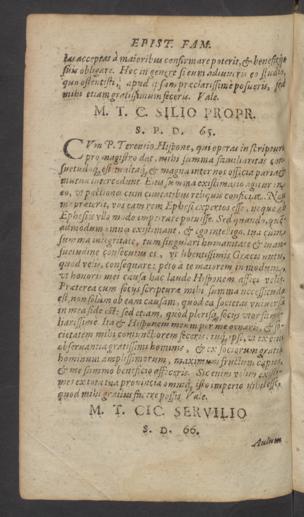 EPIST. FAM.
las acceptas à maioribus confirmare poterit, & beneficijs
suis obligare. Hoc in genere si eum adiuueris eo studio,
quo ostendisti, apud ipsam præclarissime posueris, sed
mihi etiam gratissimum feceris. Vale.
M. T. C. SILIO PROPR.
S. P. D. 65.
CVm P. Terentio Hispone, qui operas in scriptura
pro magistro dat, mihi summa familiaritas con-
suetudoq́; est: multaq́; & magna inter nos officia paria &
mutua intercedunt. Eius summa existimatio agitur in
eo, vt pactiones cum ciuitatibus reliquis conficiat. Non
me præterit, nos eam rem Ephesi expertos esse, neque ab
Ephesijs vllo modo impetrare potuisse. Sed quando, quem-
admodum omnes existimant, & ego intelligo, tua cum
summa integritate, tum singulari humanitate & man-
suetudine consecutus es, vt libentissimis Græcis nutu,
quod velis, consequare: peto à te maiorem in modum,
vt honoris mei causa hac laude Hisponem affici velis.
Præterea cum socijs scripturæ mihi summa necessitudo
est, non solum ob eam causam, quod ea societas vniuersa
in mea fide est: sed etiam, quod plerisq́; socijs vtor fami-
liarissime. Ita & Hisponem meum per me ornaris, & so-
cietatem mihi coniunctiorem feceris: tuq́; ipse, & ex eius
obseruantia gratissimi hominis, & ex sociorum gratia
hominum amplissimorum, maximum fructum capies,
& me summo beneficio affeceris. Sic enim velim existi-
mes ex tota tua prouincia omniq́; isto imperio nihil esse,
quod mihi gratius facere possis. Vale.
M. T. CIC. SERVILIO
S. D. 66.
Aulum